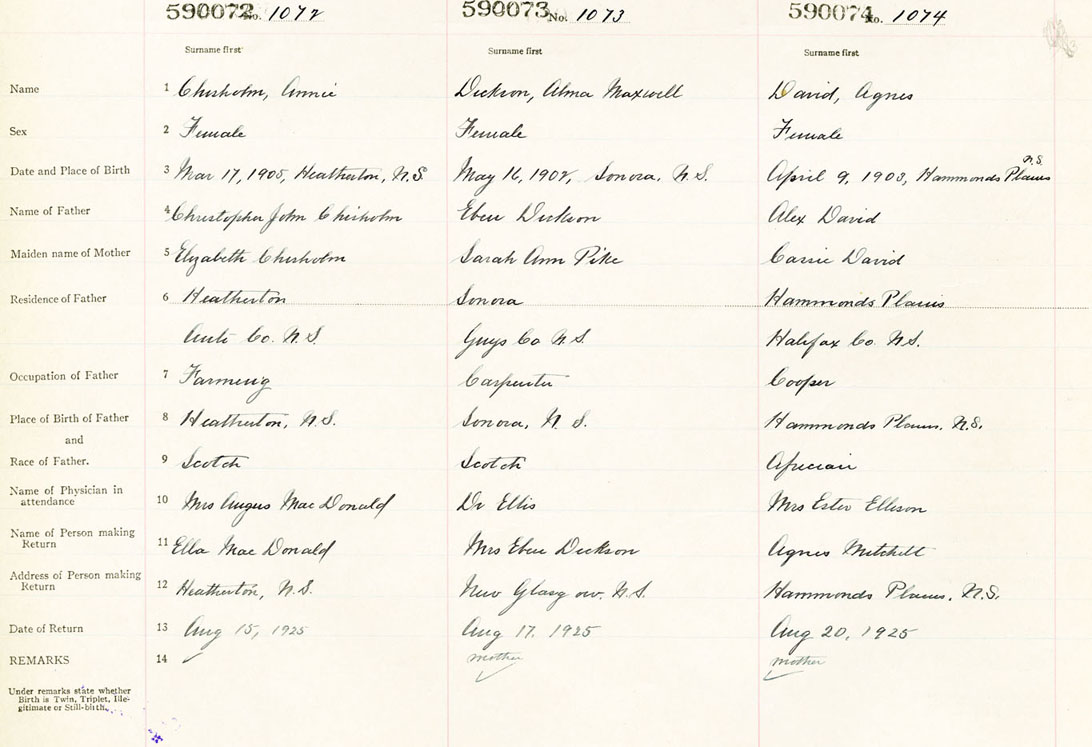 590072 No. 1072 590073 No. 1073 590074 No. 1074
Surname first Surname first Surname first
Name 1 Chisholm, Annie Dickson, Alma Maxwell David, Agnes
Sex 2 Female Female Female
N.S.
Date and Place of Birth 3 Mar 17, 1905, Heatherton, N.S. May 16, 1902, Sonora, N.S. April 9, 1903, Hammonds Plains
Name of Father 4 Christopher John Chisholm Eben Dickson Alex David
Maiden name of Mother 5 Elizabeth Chisholm Sarah Ann Pike Carrie David
Residence of Father 6 Heatherton Sonora Hammonds Plains
Anti Co. N.S. Guys Co N.S. Halifax Co. N.S.
Occupation of Father 7 Farming Carpenter Cooper
Place of Birth of Father 8 Heatherton, N.S. Sonora, N.S. Hammonds Plains, N.S.
and
Race of Father. 9 Scotch Scotch African
Name of Physician in
attendance 10 Mrs Angus MacDonald Dr Ellis Mrs Ester Ellison
Name of Person making
Return 11 Ella MacDonald Mrs Eben Dickson Agnes Mitchell
Address of Person making
Return 12 Heatherton, N.S. New Glasgow. N.S. Hammonds Plains, N.S.
Date of Return 13 Aug 15, 1925 Aug 17, 1925 Aug 20, 1925
REMARKS 14 ✓ mother mother
Under remarks state whether
Birth is Twin, Triplet, Ille-
gitimate or Still-birth.